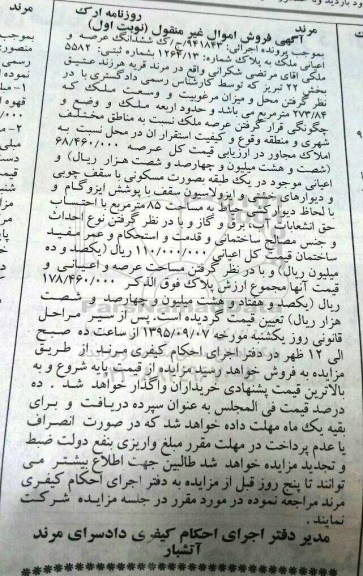 مرند
روزنامه ارک
آگهی فروش اموال غیر منقول (نوبت اول)
بموجب پرونده اجرائی: ۹۴۱۸۴۳/ج/ک ششدانگ عرصه و
اعیانی ملک به پلاک شماره: ۱۲۶۴/۱۳ بشماره ثبتی: ۵۵۸۲
ملکی آقای مرتضی شکرانی واقع در مرند قریه هرزند عتیق
بخش ۲۲ تبریز که توسط کارشناس رسمی دادگستری با در
نظر گرفتن محل و میزان مرغوبیت و وسعت ملک که
۲۷۳/۸۴ مترمربع می باشد و حدود اربعه ملک و وضع و
چگونگی قرار گرفتن عرصه ملک نسبت به مناطق مختلف
شهری و منطقه وقوع و کیفیت استقرار آن در محل نسبت به
املاک مجاور در ارزیابی قیمت کل عرصه ۶۸/۴۶۰/۰۰۰
(شصت و هشت میلیون و چهارصد و شصت هزار ریال) و
اعیانی موجود در یک طبقه بصورت مسکونی با سقف چوبی
و دیوارهای خشتی و ایزولاسیون سقف با پوشش ایزوگام و
با لحاظ دیوارکشی با مساحت ۸۵ مترمربع با احتساب
حق انشعابات آب، برق و گاز و با در نظر گرفتن نوع احداث
و جنس مصالح ساختمانی و قدمت و استحکام و عمر مفید
ساختمان قیمت کل اعیانی ۱۱۰/۰۰۰/۰۰۰ ریال (یکصد و ده
میلیون ریال) و با در نظر گرفتن مساحت عرصه و اعیانی و
قیمت آنها مجموع ارزش پلاک فوق الذکر ۱۷۸/۴۶۰/۰۰۰
ریال (یکصد و هفتاد و هشت میلیون و چهارصد و شصت
هزار ریال) تعیین قیمت گردیده است، پس از سیر مراحل
قانونی روز یکشنبه مورخه ۱۳۹۵/۰۹/۰۷ از ساعت ده صبح
الی ۱۲ ظهر در دفتر اجرای احکام کیفری مرند از طریق
مزایده به فروش خواهد رسید مزایده از قیمت پایه شروع و به
بالاترین قیمت پیشنهادی خریداران واگذار خواهد شد. ده
درصد قیمت فی المجلس به عنوان سپرده دریافت و برای
بقیه یک ماه مهلت داده خواهد شد که در صورت انصراف
یا عدم پرداخت در مهلت مقرر مبلغ واریزی بنفع دولت ضبط
و تجدید مزایده خواهد شد طالبین جهت اطلاع بیشتر می
توانند تا پنج روز قبل از مزایده به دفتر اجرای احکام کیفری
مرند مراجعه نموده در مورد مقرر در جلسه مزایده شرکت
نمایند.
مدیر دفتر اجرای احکام کیفری دادسرای مرند
آتشبار